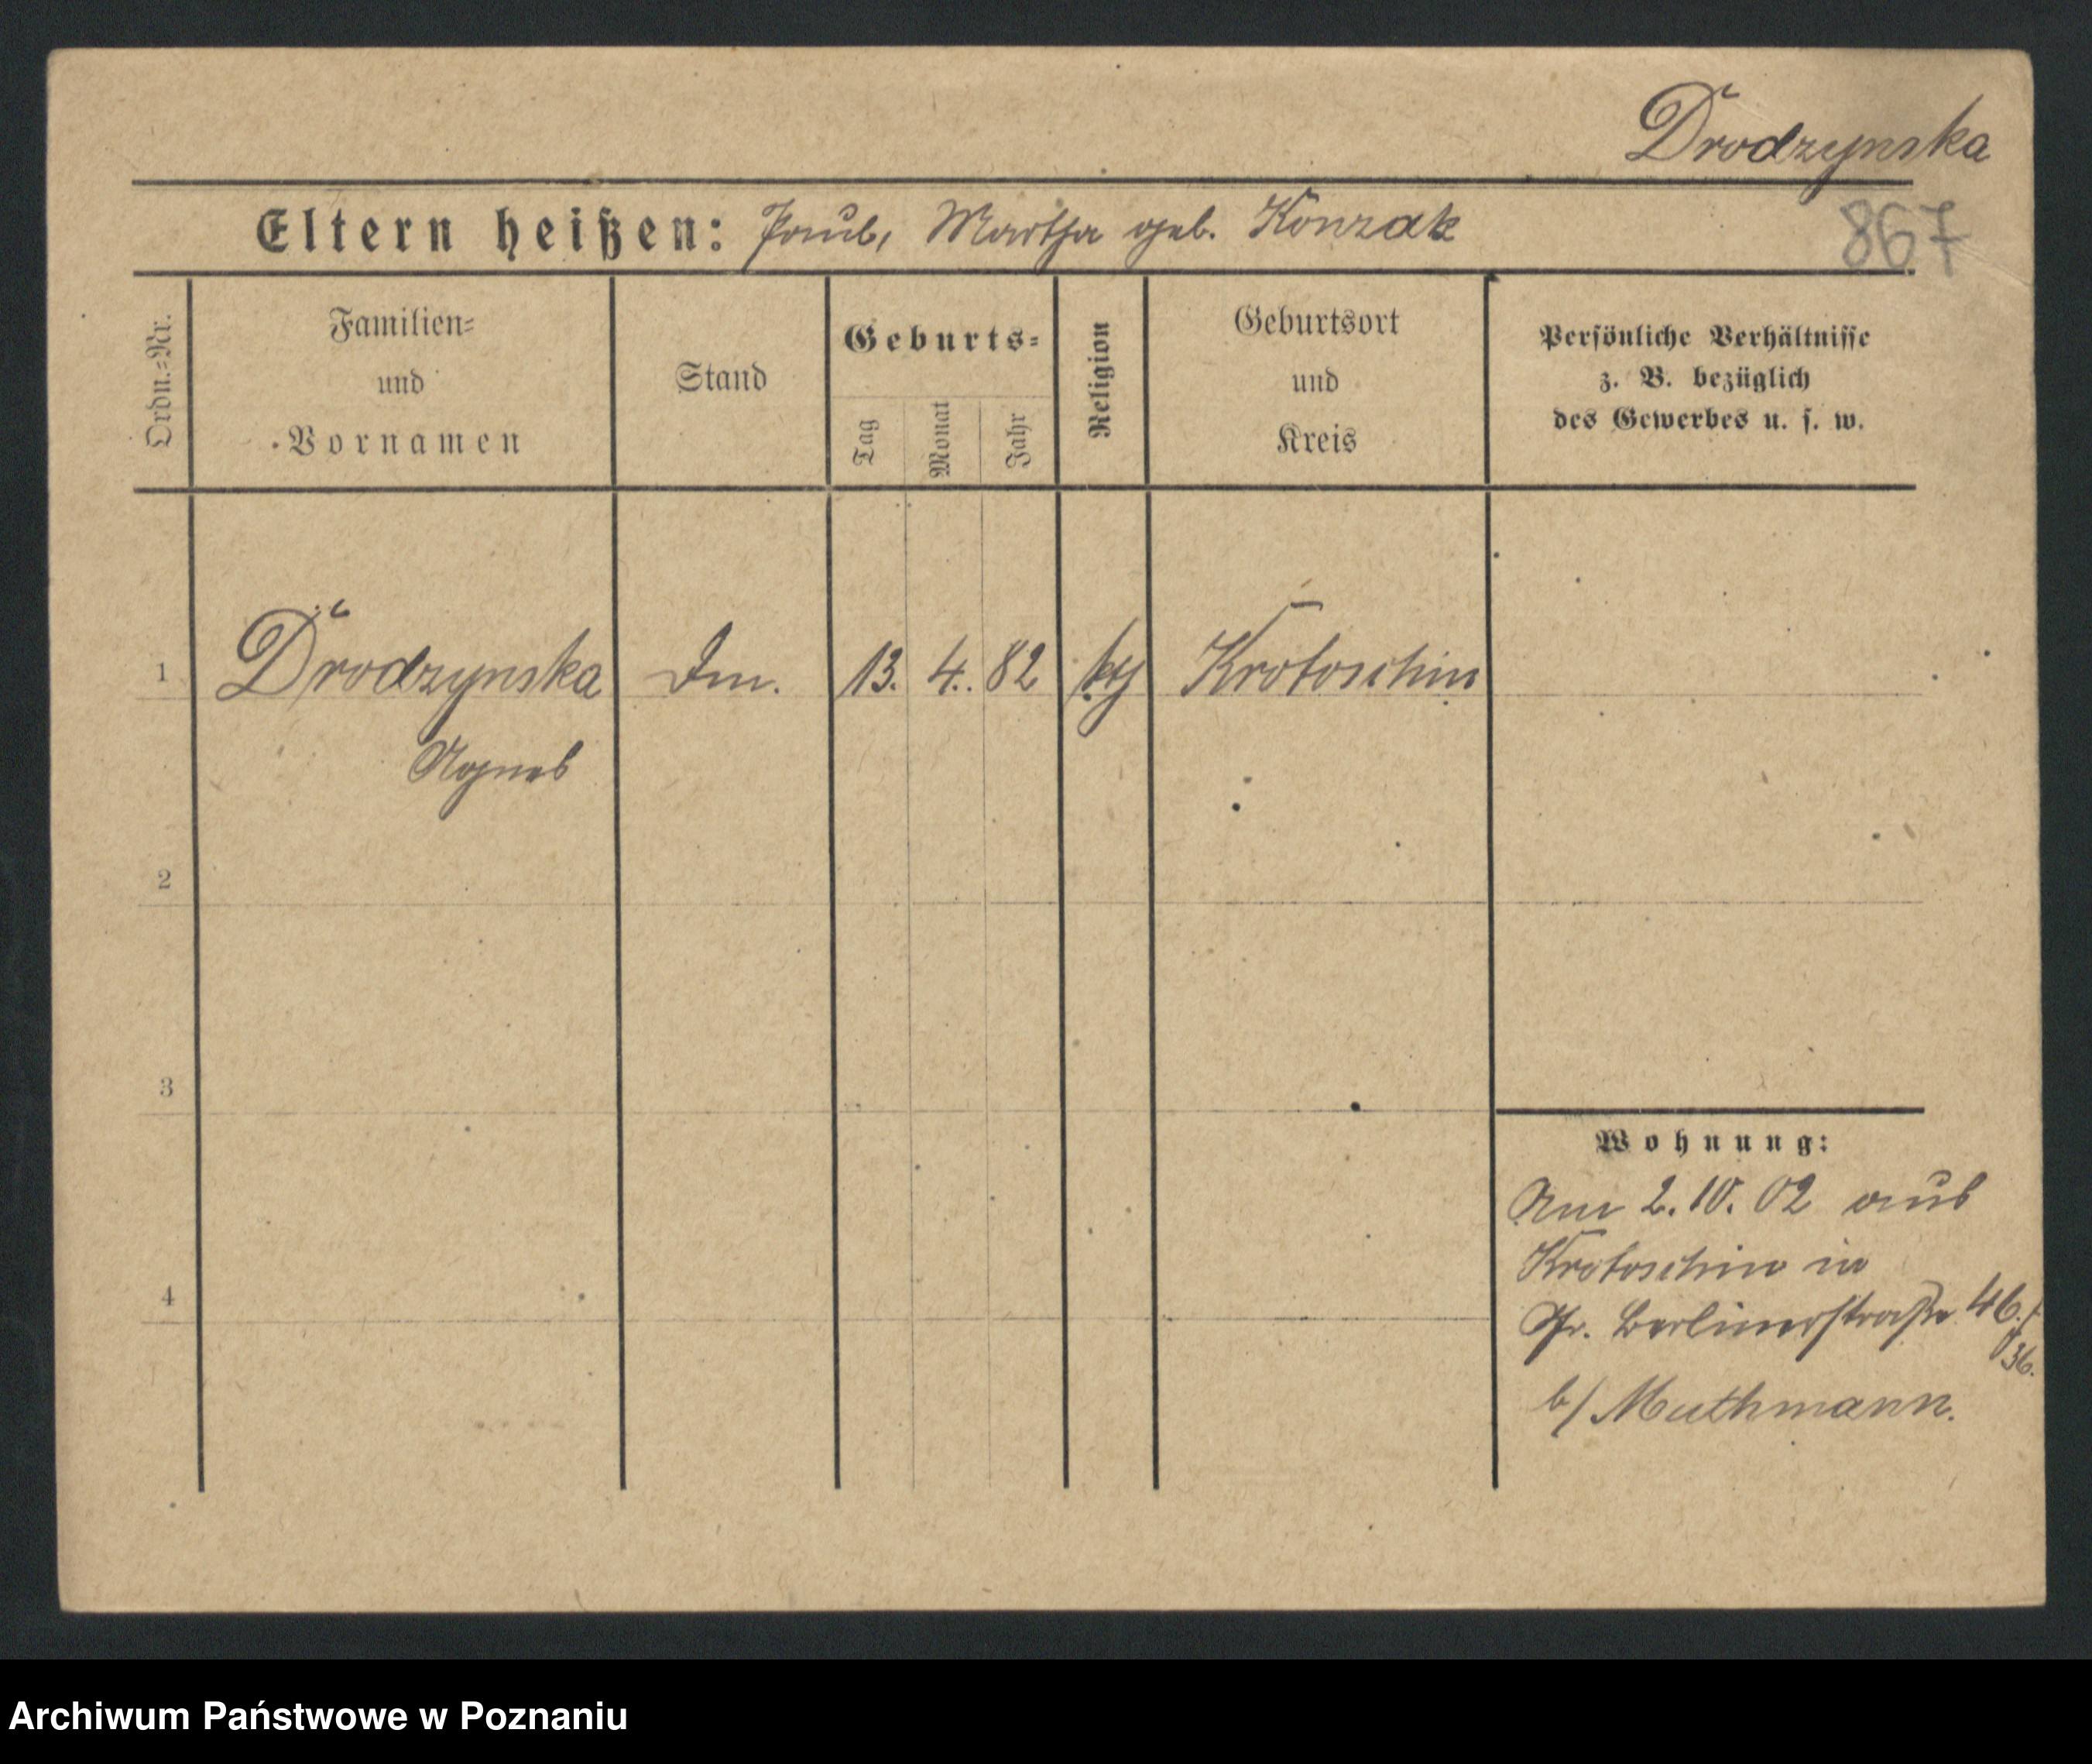 Drodzynska
Eltern heißen: Paul, Martha geb. Konzak
867
Ordn.-Nr.
Familien-
und
Vornamen
Stand
Geburts-
Tag
Monat
Jahr
Religion
Geburtsort
und
Kreis
Persönliche Verhältnisse
z. B. bezüglich
des Gewerbes u. s. w.
1 Drodzynska 13. 4. 82 Krotoschin
Agnes
2
3
4
Wohnung:
Am 2.10.02 aus
Krotoschin in
Gr. Berlinerstraße 46.
36.
b/ Muthmann.
Archiwum Państwowe w Poznaniu